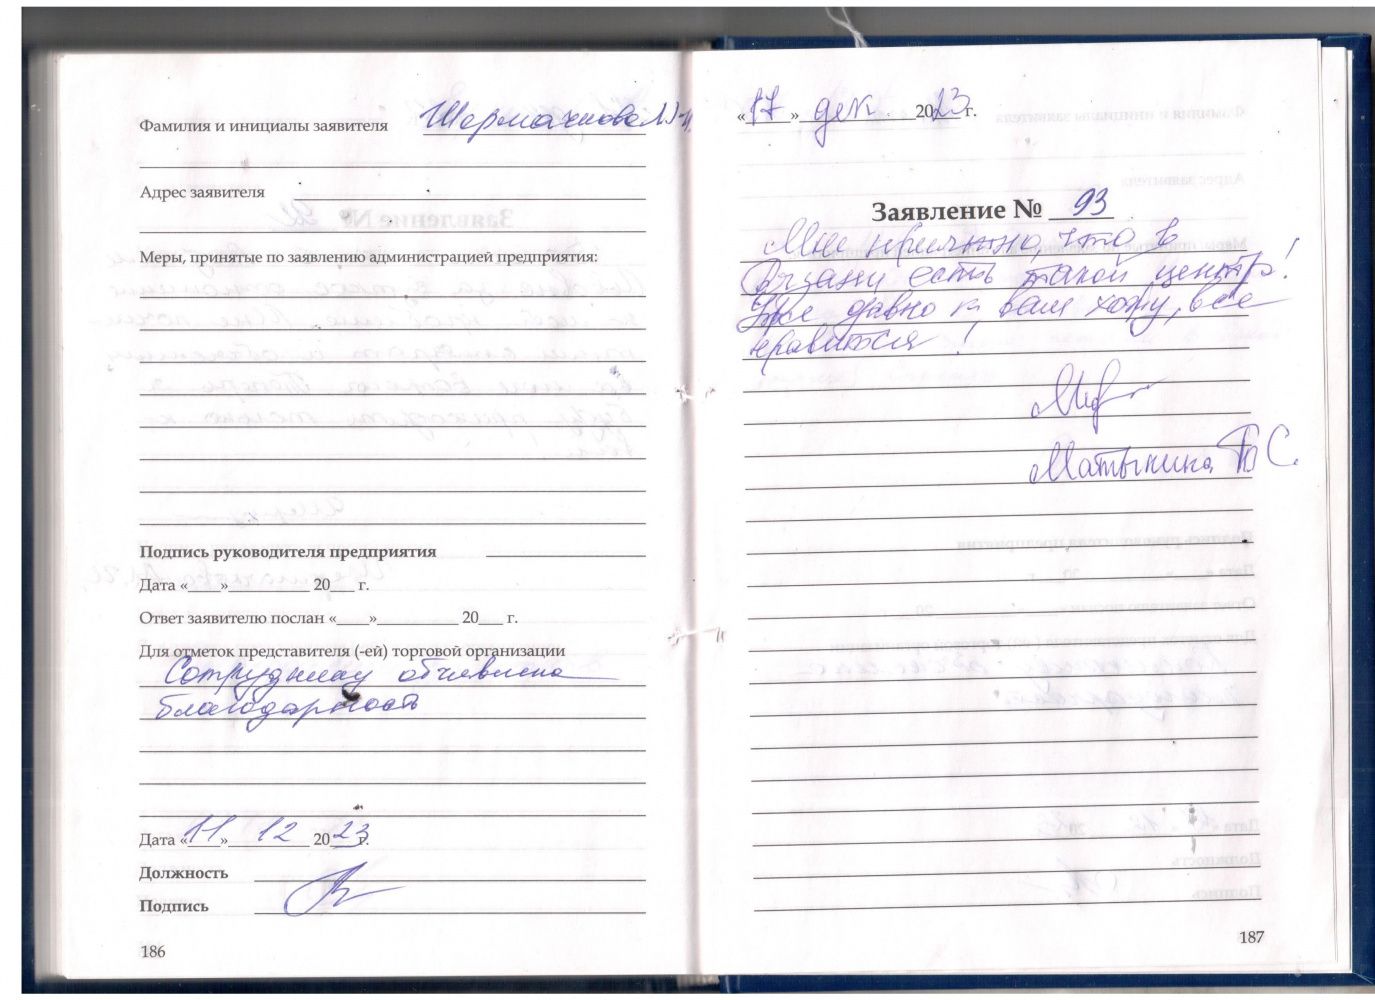 Фамилия и инициалы заявителя
Адрес заявителя
Меры, принятые по заявлению администрацией предприятия:
Подпись руководителя предприятия
Дата «____»__________ 20___ г.
Ответ заявителю послан «____»__________ 20___ г.
Для отметок представителя (-ей) торговой организации
Сотруднику объявлена
благодарность
Дата «11» 12 2023 г.
Должность
Подпись
186
«17» дек 2023 г.
Заявление № 93
Мне приятно, что в
Рязани есть такой центр!
Уже давно к вам хожу, все
нравится!
Матыкина Т С.
187